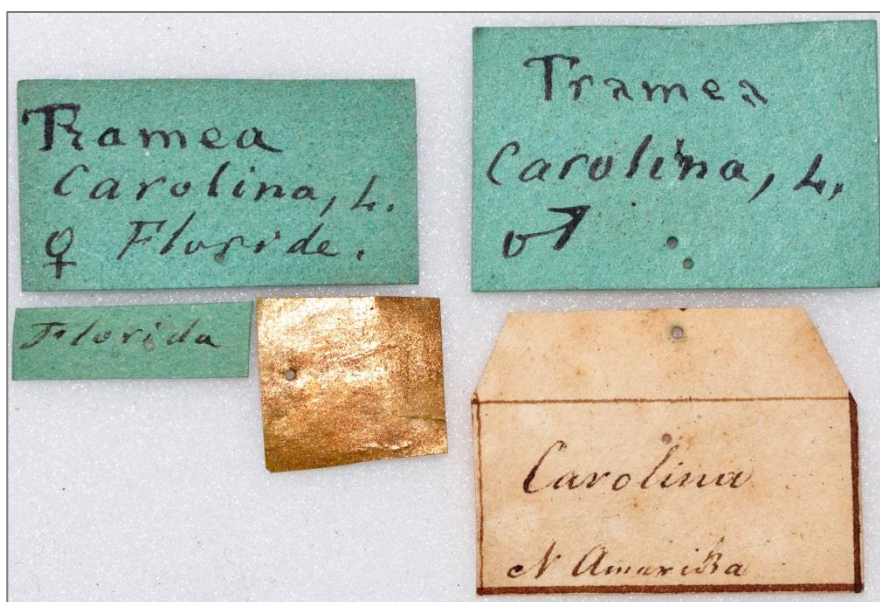 Tramea
Carolina, L.
♀ Floride.
Florida
Tramea
Carolina, L.
♂
Carolina
N Amerika